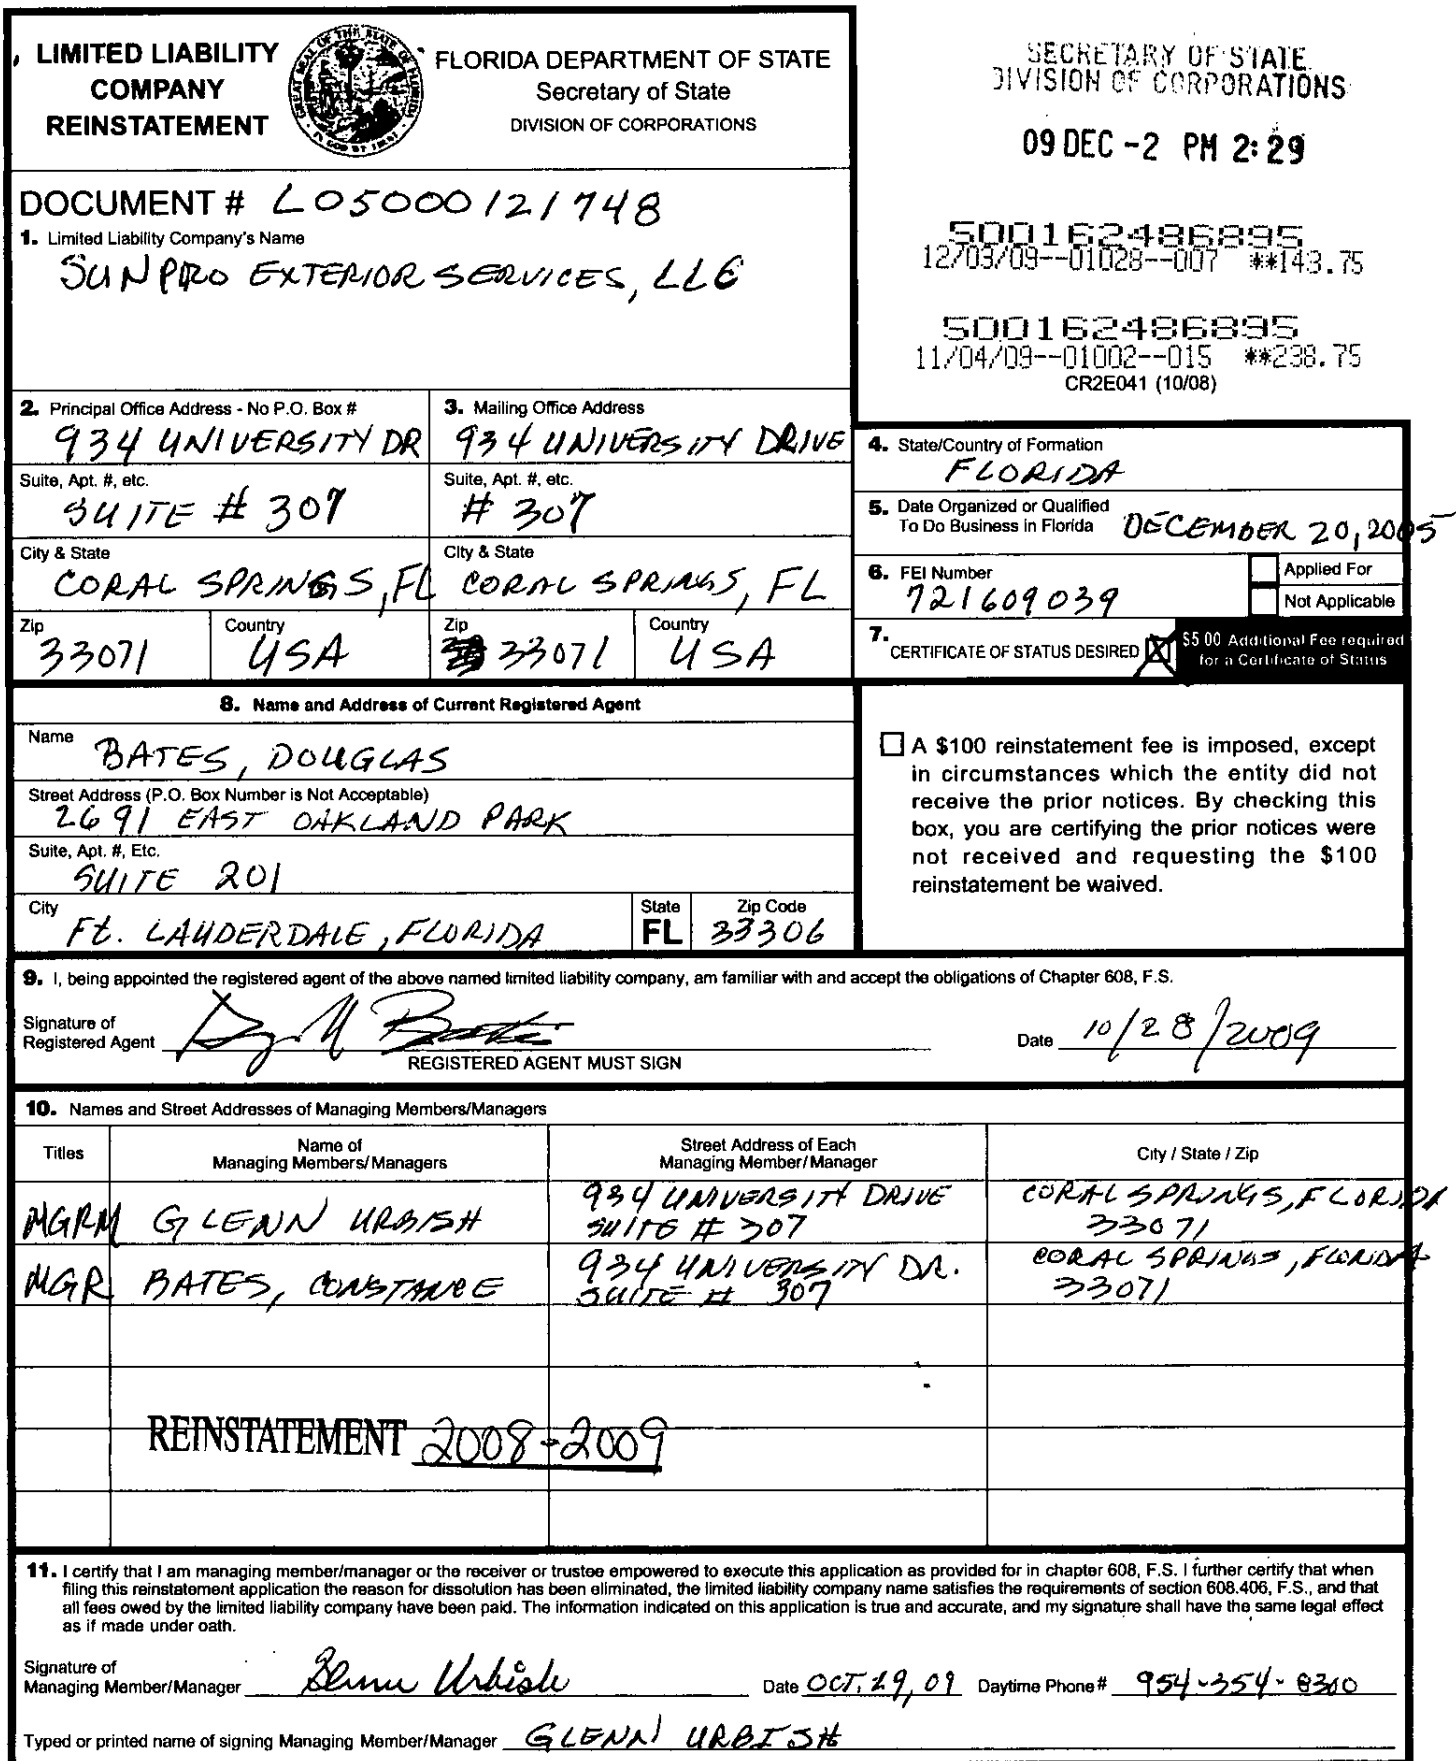 LIMITED LIABILITY
COMPANY
REINSTATEMENT
FLORIDA DEPARTMENT OF STATE
Secretary of State
DIVISION OF CORPORATIONS
SECRETARY OF STATE
DIVISION OF CORPORATIONS
09 DEC -2 PM 2:29
DOCUMENT # L05000121748
1. Limited Liability Company's Name
SUNPRO EXTERIOR SERVICES, LLC
500162486895
12/03/09--01028--007 **143.75
500162486895
11/04/09--01002--015 **238.75
CR2E041 (10/08)
2. Principal Office Address - No P.O. Box #
934 UNIVERSITY DR
3. Mailing Office Address
934 UNIVERSITY DRIVE
Suite, Apt. #, etc.
SUITE # 307
Suite, Apt. #, etc.
# 307
City & State
CORAL SPRINGS, FL
City & State
CORAL SPRINGS, FL
Zip
33071
Country
USA
Zip
33071
Country
USA
4. State/Country of Formation
FLORIDA
5. Date Organized or Qualified
To Do Business in Florida DECEMBER 20, 2005
6. FEI Number
721609039
Applied For
Not Applicable
7. CERTIFICATE OF STATUS DESIRED X
$5.00 Additional Fee required
for a Certificate of Status
8. Name and Address of Current Registered Agent
Name
BATES, DOUGLAS
Street Address (P.O. Box Number is Not Acceptable)
2691 EAST OAKLAND PARK
Suite, Apt. #, Etc.
SUITE 201
City
Ft. LAUDERDALE, FLORIDA
State
FL
Zip Code
33306
A $100 reinstatement fee is imposed, except
in circumstances which the entity did not
receive the prior notices. By checking this
box, you are certifying the prior notices were
not received and requesting the $100
reinstatement be waived.
9. I, being appointed the registered agent of the above named limited liability company, am familiar with and accept the obligations of Chapter 608, F.S.
Signature of
Registered Agent
REGISTERED AGENT MUST SIGN
Date 10/28/2009
10. Names and Street Addresses of Managing Members/Managers
Titles
Name of
Managing Members/Managers
Street Address of Each
Managing Member/Manager
City / State / Zip
MGRM GLENN URBISH
934 UNIVERSITY DRIVE
SUITE # 307
CORAL SPRINGS, FLORIDA
33071
MGR BATES, CONSTANCE
934 UNIVERSITY DR.
SUITE # 307
CORAL SPRINGS, FLORIDA
33071
REINSTATEMENT 2008-2009
11. I certify that I am managing member/manager or the receiver or trustee empowered to execute this application as provided for in chapter 608, F.S. I further certify that when
filing this reinstatement application the reason for dissolution has been eliminated, the limited liability company name satisfies the requirements of section 608.406, F.S., and that
all fees owed by the limited liability company have been paid. The information indicated on this application is true and accurate, and my signature shall have the same legal effect
as if made under oath.
Signature of
Managing Member/Manager Glenn Urbish
Date OCT. 29, 09 Daytime Phone # 954-354-8300
Typed or printed name of signing Managing Member/Manager GLENN URBISH